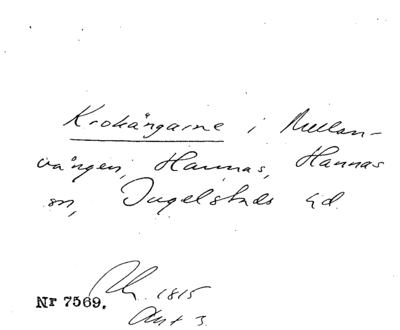 Krokängarne i Mellan-
vången, Hannas, Hannas
sn, Ingelstads hd.
Nr 7569.
1815
Akt 3